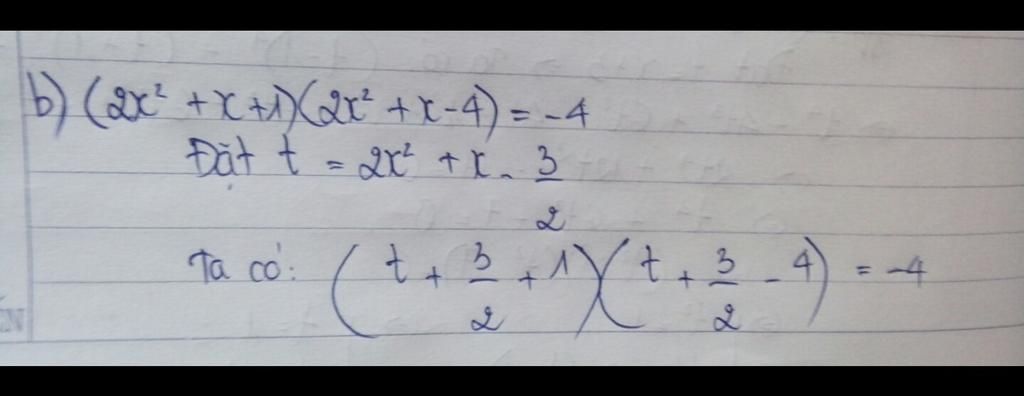 b) (2x² + x + 1)(2x² + x - 4) = -4
Đặt t = 2x² + x - 3/2
Ta có: (t + 3/2 + 1)(t + 3/2 - 4) = -4